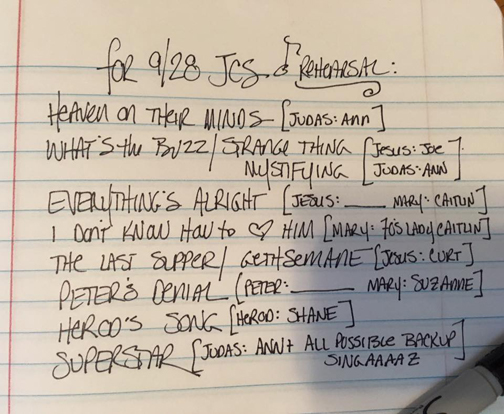 for 9/28 JCS ♪ REHEARSAL:
HEAVEN ON THEIR MINDS [JUDAS: ANN]
WHAT'S the BUZZ/ STRANGE THING [JESUS: JOE
MYSTIFYING JUDAS: ANN]
EVERYTHING'S ALRIGHT [JESUS: ____ MARY: CAITLIN]
I DON'T KNOW HOW to ♡ HIM [MARY: 70'S LADY CAITLIN]
THE LAST SUPPER/ GETHSEMANE [JESUS: CURT]
PETER'S DENIAL [PETER: ____ MARY: SUZANNE]
HEROD'S SONG [HEROD: SHANE]
SUPERSTAR [JUDAS: ANN + ALL POSSIBLE BACKUP
SINGAAAAZ]